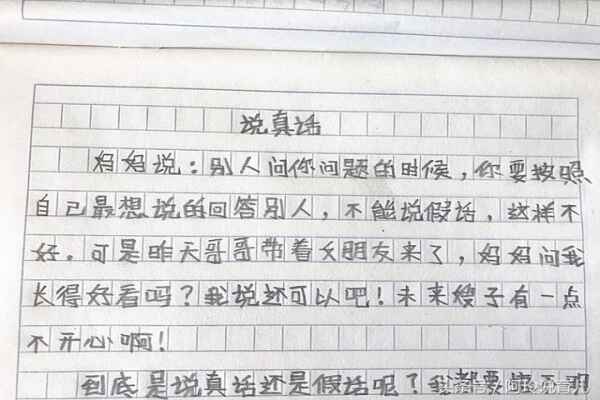 说真话
妈妈说：别人问你问题的时候，你要按照
自己最想说的回答别人，不能说假话，这样不
好。可是昨天哥哥带着女朋友来了，妈妈问我
长得好看吗？我说还可以吧！未来嫂子有一点
不开心啊！
到底是说真话还是假话呢？我都要